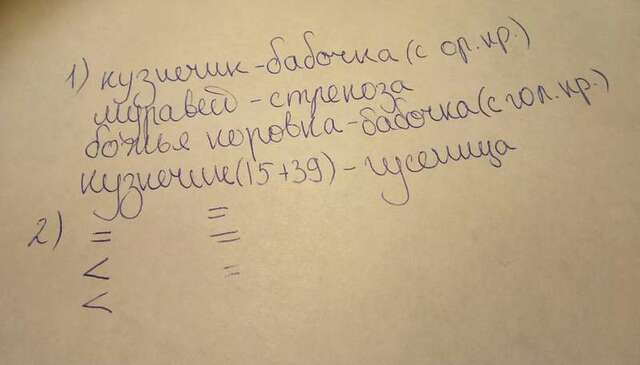 1) кузнечик - бабочка (с ор. кр.)
муравей - стрекоза
божья коровка - бабочка (с гол. кр.)
кузнечик (15+39) - гусеница
2) = =
= =
< =
<